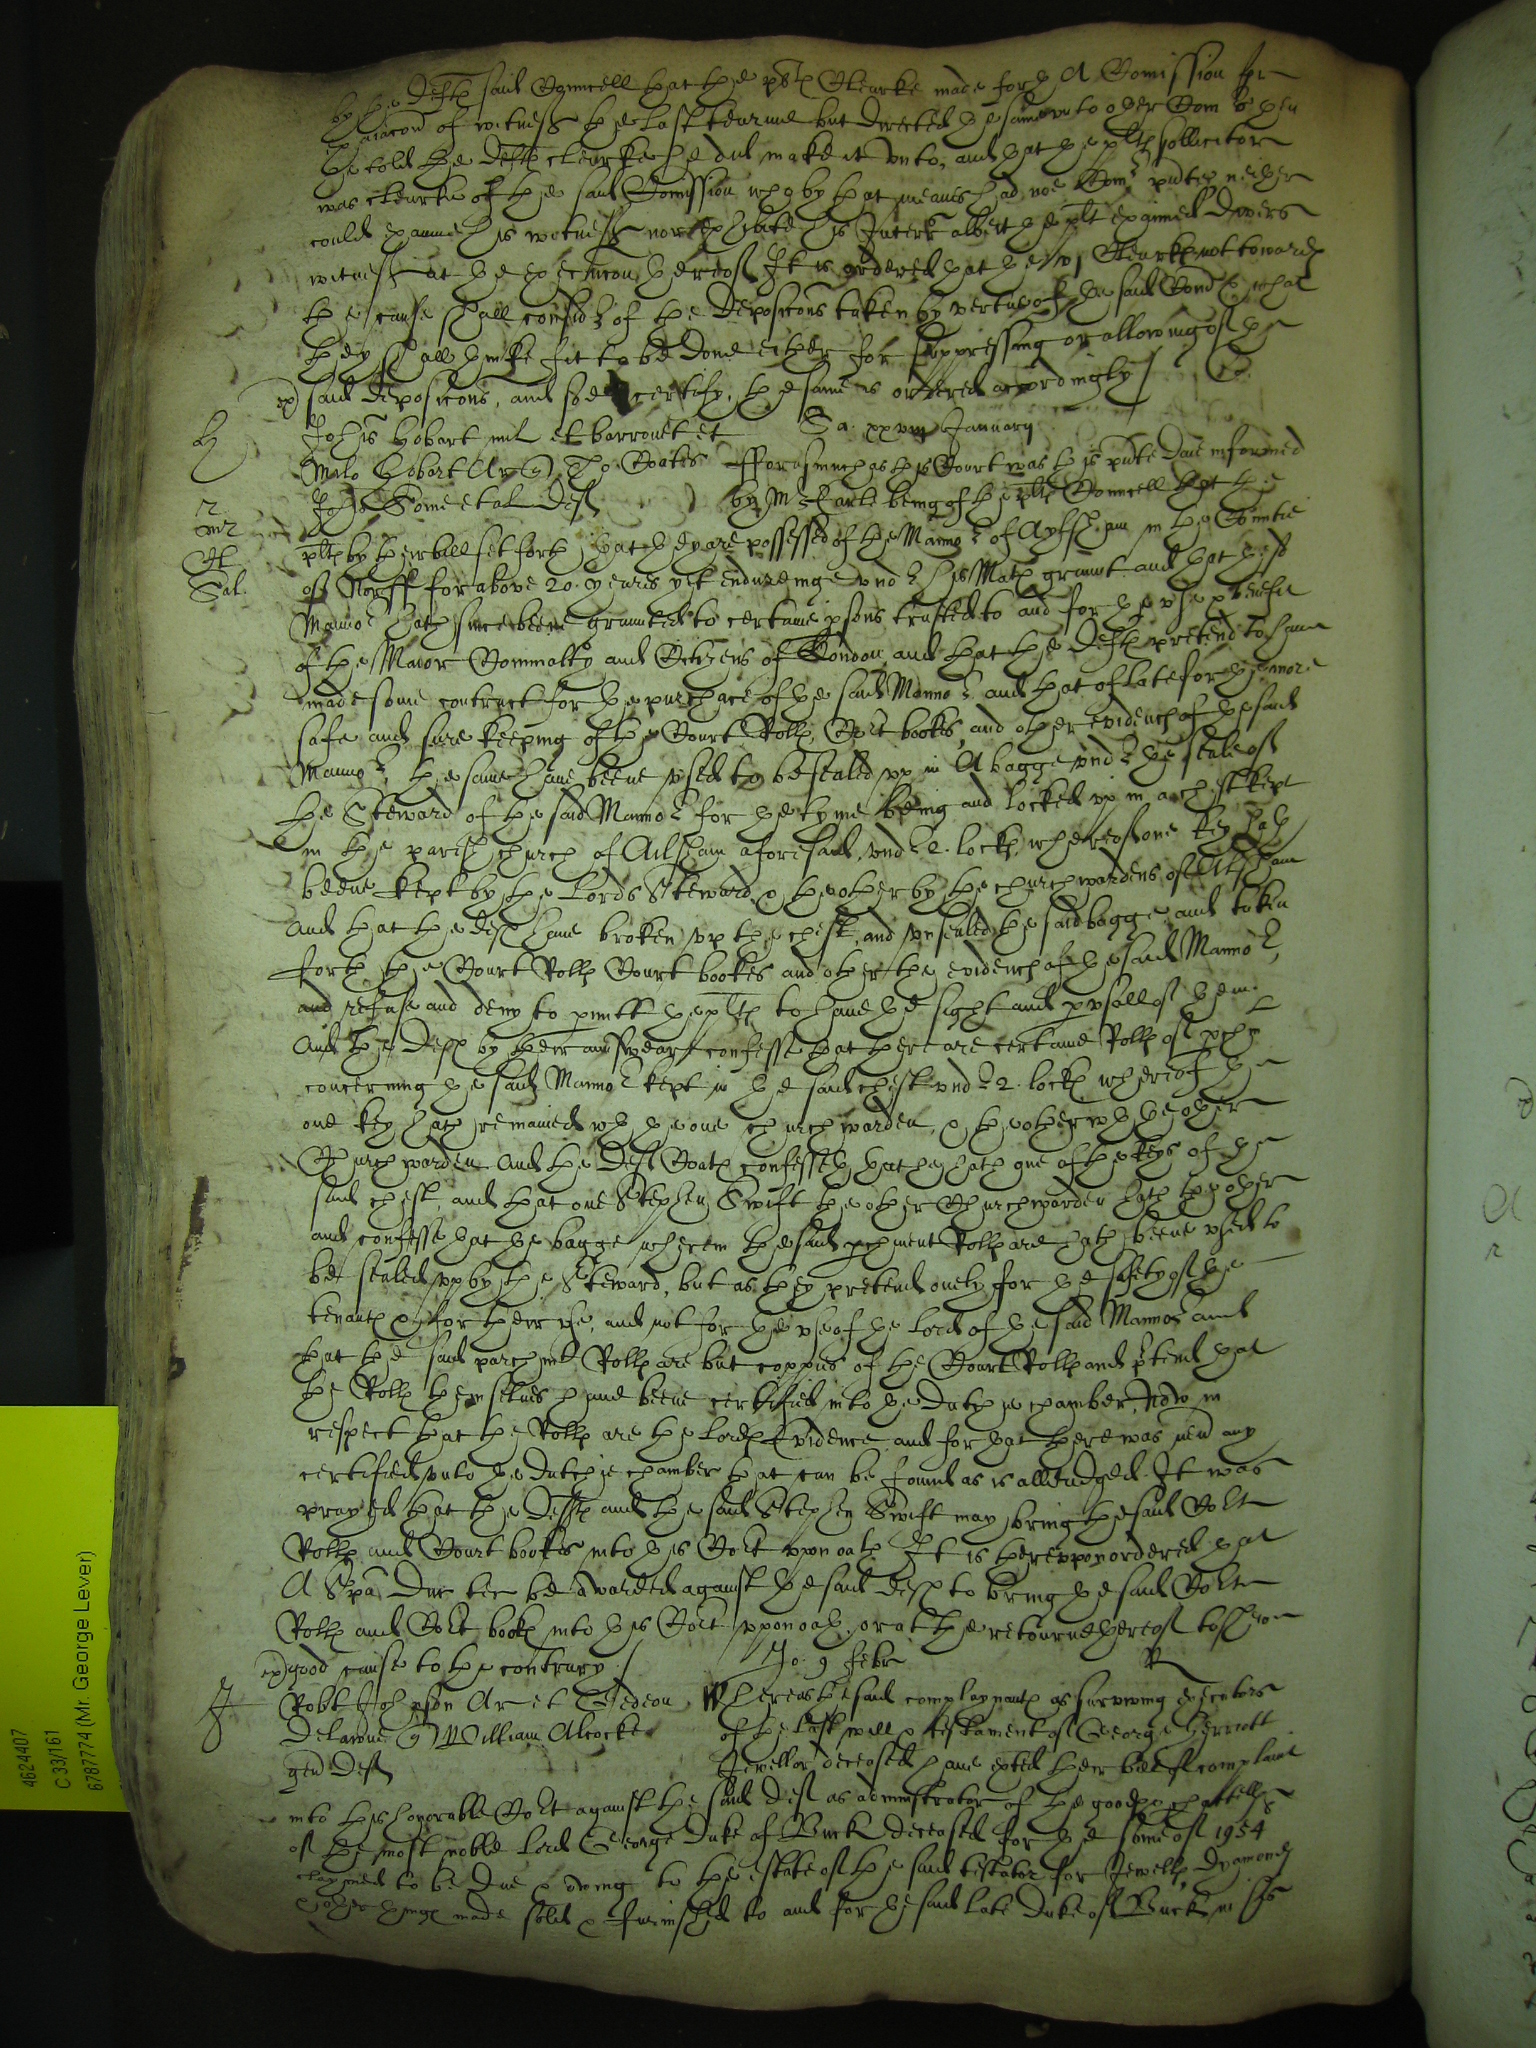 by the Defts said Councell that the plts Clearke made forth A Comission for
exaiacon of witness the last tearme but directed the same to other Com then
he told the Defts clearke he did make it vnto, and that the plts sollicitor
was clearke of the said Comission who by that meanes had noe Comr putes neither
could examine his witness nor exhibite his Interr albeit the plt exaimed divers
witness at the execucon thereof It is ordered that the Clearks not towards
the cause shall consider of the Deposicons taken by vertue of the said Comn & what
they shall thinke fit to be done either for suppressing or allowing of the
ex) said deposicons, and soe certify, the same is ordered accordingly
H Johis Hobart mil et barronet et Sa. xxviii January
Milo Hobart Ar Tho Coates fforasmuch as this Court was this pnte daie informed
John Some et al Deft by Mr Earle being of the plts Councell that the
mr plts by their bill set forth that they are possessed of the Mannor of Aylsham in the Countie
of Norff for above 20 yeares yet endureinge vnd his Mats graunt and that the sd
Sal. Mannor hath since beene graunted to certaine psons trusted to and for the vse & benefit
of the Maior Commalty and Citizens of London and that the Defts pretend to have
made some contract for the purchace of the said Mannor and that of late for the more
safe and sure keeping of the Court Rolls, Cort bookes, and other evidences of the said
Mannor, the same have beene vsed to be sealed vp in A bagge vnd the seale of
the Steward of the said Mannor for the tyme being and locked vp in a chest kept
in the parish church of Ailsham aforesaid vnd 2 locks whereof one key hath
beene kept by the Lords Steward & the other by the churchwardens of Alisham
and that the defts have broken vp the chest, and vnsealed the said bagge and taken
forth the Court Rolls Court bookes and other the evidences of the said Mannor,
and refuse and deny to pmitt the plts to have the sight and pvsall of them.
And the Defts by their answear confesse that there are certaine Rolls of pchmt
concerning the said Mannor kept in the said chest vnd 2 locks whereof the
one key hath remained wth the one churchwarden, & the other wth the other
Churchwarden And the Deft Coats confesseth that he hath one of the keys of the
said chest, and that one Stephen Swift the other Churchwarden hath the other
and confesse that the bagge wherein the said pchment Rolls are hath beene vsed to
be sealed vp by the Steward, but as they pretend onely for the safety of the
tenants & for their vse, and not for the vse of the Lord of the said Mannor and
that the said parchmt Rolls are but coppies of the Court Rolls and ptend that
the Rolls themselues have beene certified into the Dutchie chamber, Now in
respect that the Rolls are the Lords Evidence and for that there was nev any
certified into the Dutchie chamber that can be found as is alleadged It was
prayed that the Defts and the said Stephen Swift may bring the said Cort
Rolls and Court bookes into this Cort vpon oath It is therevpon ordered that
A Spa Duc tec be awarded against the said defts to bring the said Cort
Rolls and Cort books into this Cort vpon oath, or at the retourne thereof to shew
ex) good cause to the contrary
Jo. 9 Febr
J Robt Johnson Ar et Gedeon Whereas the said complaynants as surviving executors
Delaune William Alcocke of the last will & testament of George Herriott
gen Deft Jeweller deceased have exted their bill of complaint
into this honorable Cort against the said Deft as administrator of the goods & chattells
of the most noble Lord George Duke of Buck deceased for the some of 1954
claymed to be due & owing to the estate of the said testator for Jewells, Dyamonds
& other things made sold & furnished to and for the said late Duke of Buck in his
4624407
C 33/161
6787774 (Mr. George Lever)